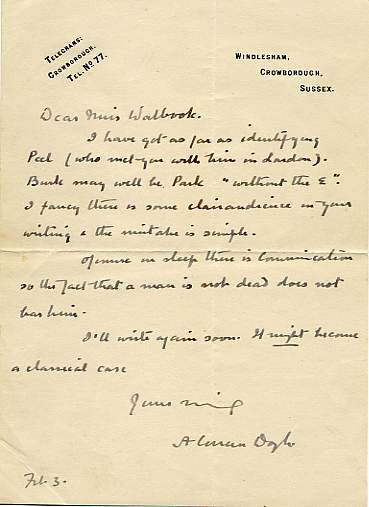 TELEGRAMS:
CROWBOROUGH.
TEL. NO. 77.
WINDLESHAM,
CROWBOROUGH,
SUSSEX.
Dear Miss Walbrook.
I have got as far as identifying
Peel (who met you with him in London).
Burk may well be Park "without the E".
I fancy there is some clairaudience in your
writing & the mistake is simple.
Of course in sleep there is communication
so the fact that a man is not dead does not
bar him.
I'll write again soon. It might become
a classical case
Yours
A Conan Doyle
Feb. 3.